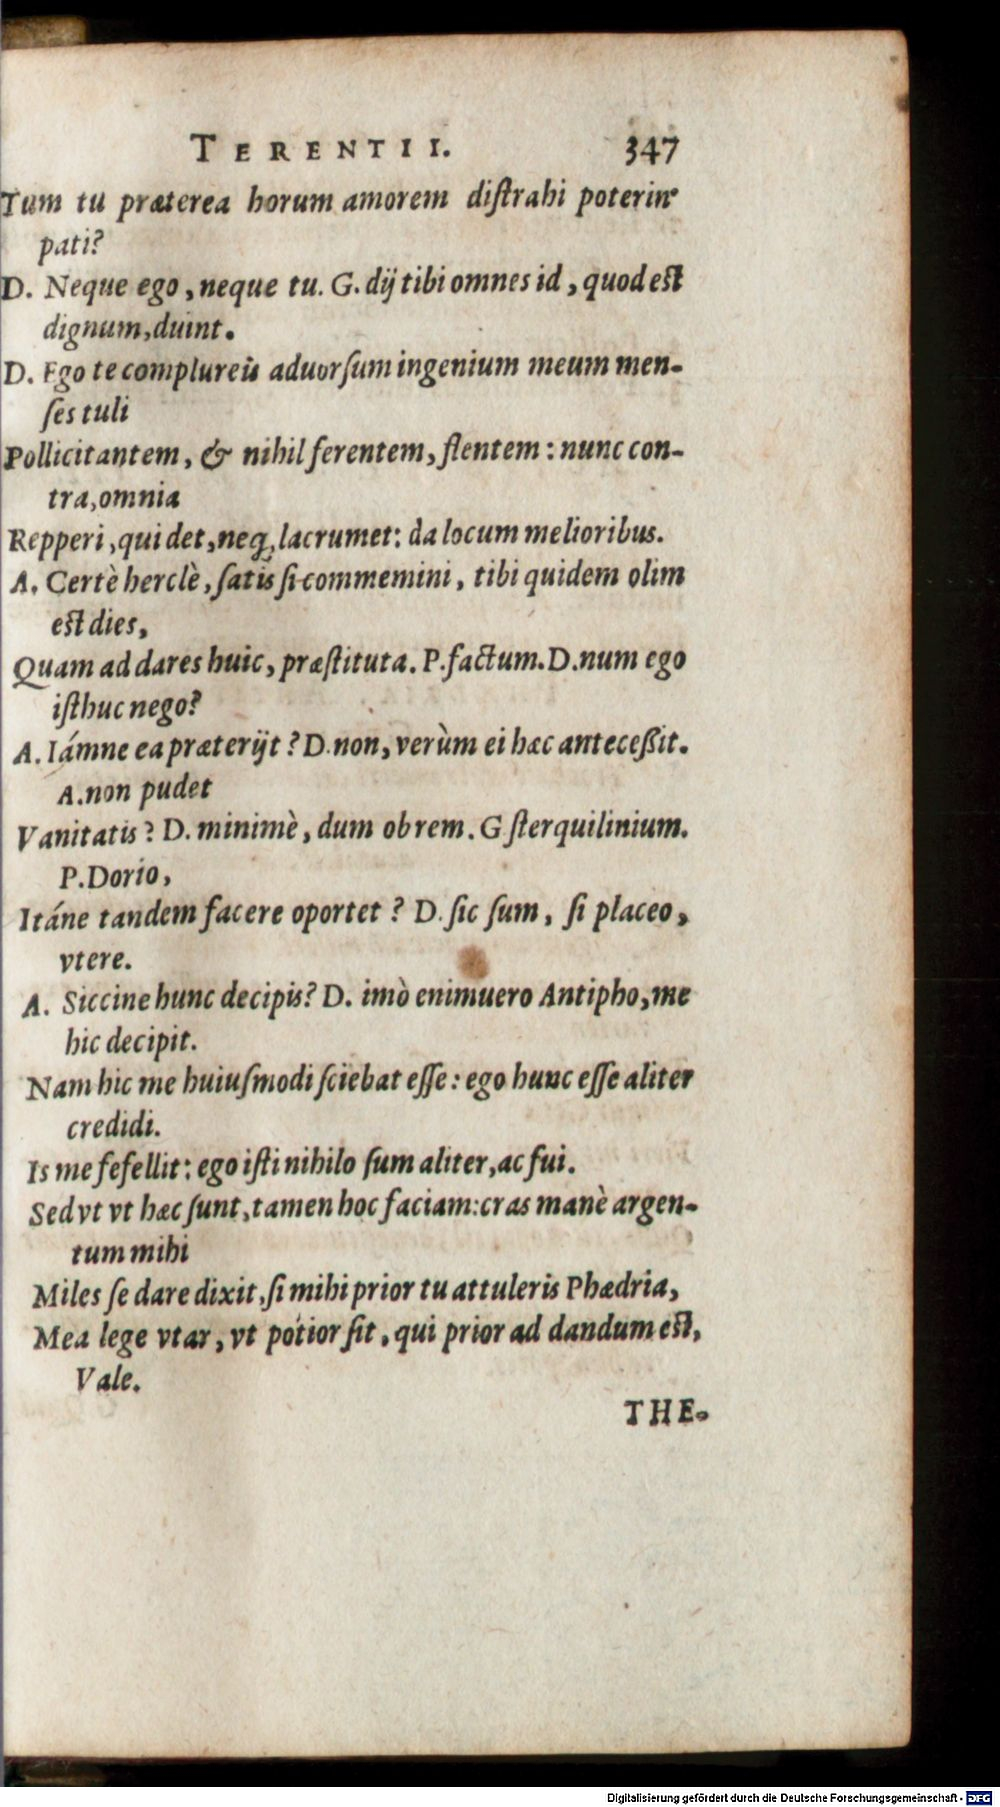 TERENTII. 347
Tum tu præterea horum amorem diſtrahi poterin'
pati?
D. Neque ego, neque tu. G. dij tibi omnes id, quod est
dignum, duint.
D. Ego te complureis aduorſum ingenium meum men-
ſes tuli
Pollicitantem, & nihil ferentem, flentem: nunc con-
tra, omnia
Repperi, qui det, neq; lacrumet: da locum melioribus.
A. Certè herclè, ſatis ſi commemini, tibi quidem olim
est dies,
Quam ad dares huic, præſtituta. P. factum. D. num ego
iſthuc nego?
A. Iámne ea præterijt? D. non, verùm ei hæc anteceßit.
A. non pudet
Vanitatis? D. minimè, dum ob rem. G ſterquilinium.
P. Dorio,
Itáne tandem facere oportet? D. ſic ſum, ſi placeo,
vtere.
A. Siccine hunc decipis? D. imò enimuero Antipho, me
hic decipit.
Nam hic me huiuſmodi ſciebat eſſe: ego hunc eſſe aliter
credidi.
Is me fefellit: ego iſti nihilo ſum aliter, ac fui.
Sed vt vt hæc ſunt, tamen hoc faciam: cras manè argen-
tum mihi
Miles ſe dare dixit, ſi mihi prior tu attuleris Phædria,
Mea lege vtar, vt potior ſit, qui prior ad dandum est,
Vale.
THE-
Digitalisierung gefördert durch die Deutsche Forschungsgemeinschaft - DFG